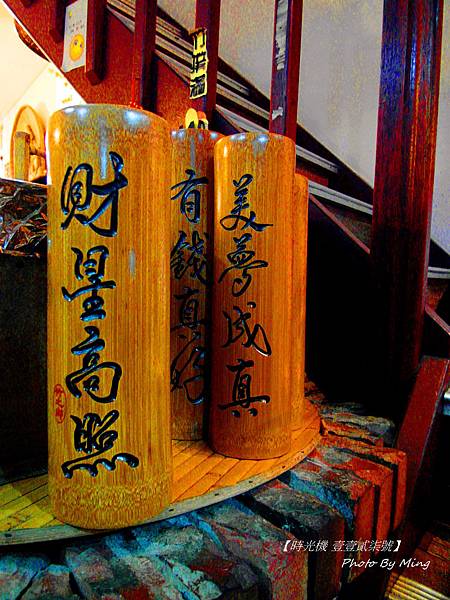 財星高照
有錢真好
美夢成真
【時光機 壹壹貳柒號】
Photo By Ming